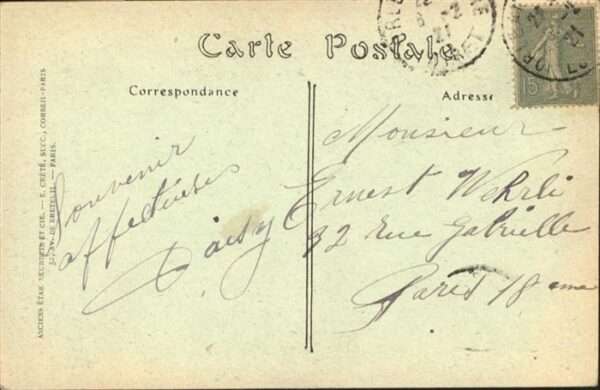 Carte Postale
Correspondance
Adresse
Souvenir
affectueux
Daisy
Monsieur
Ernest Wehrli
32 Rue Gabrielle
Paris 18 eme
ANCIENS ÉTAB. NEURDEIN ET CIE. — E. CRÉTÉ, SUCC., CORBEIL-PARIS
52, AV. DE BRETEUIL. — PARIS.
15
21